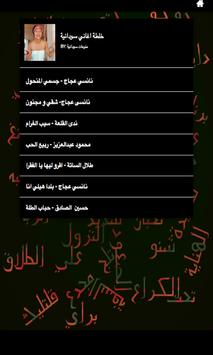 خلطة اغاني سودانية
BY: منوعات سودانية
نانسي عجاج - جسمي المنحول
نانسي عجاج - شقي و مجنون
ندى القلعة - سيب الغرام
محمود عبدالعزيز - ربيع الحب
طلال الساتة - اقرو ليها يا الفقرا
نانسي عجاج - بلدا هيلي انا
حسين الصادق - حباب الطلة
النزول
شنو
على
الطلاق
الكراع
براي